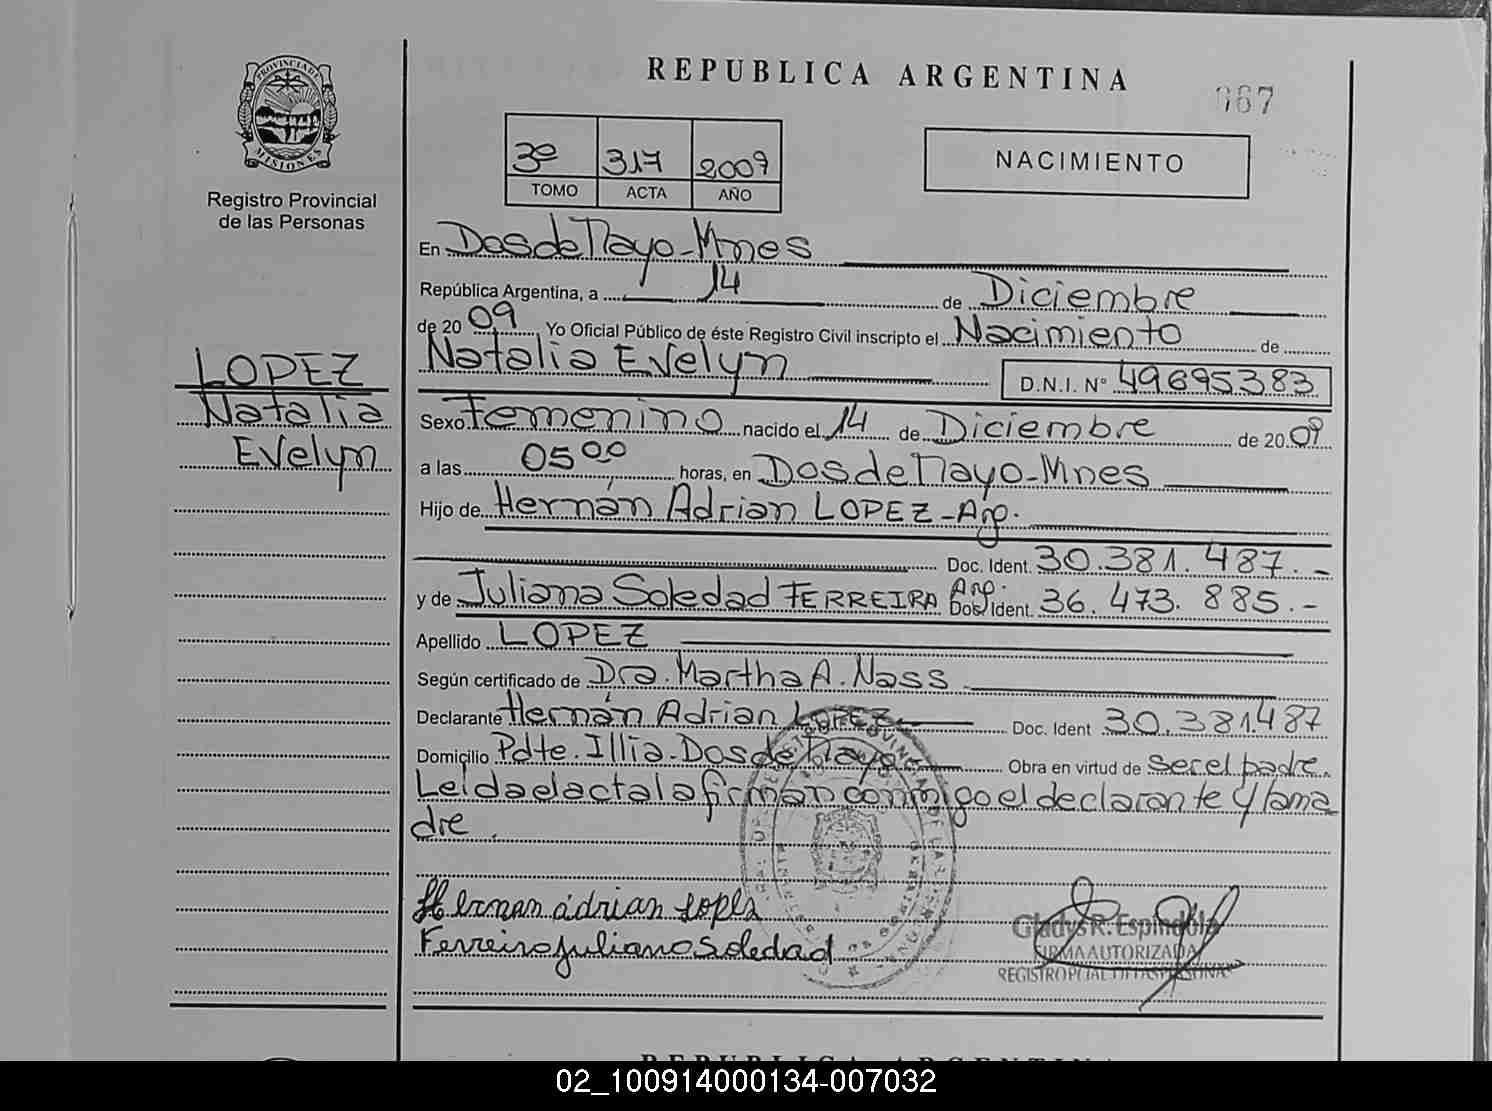 PROVINCIA DE
MISIONES
Registro Provincial
de las Personas
LOPEZ
Natalia
Evelyn
REPUBLICA ARGENTINA
067
3º 317 2009
TOMO ACTA AÑO
NACIMIENTO
En Dos de Mayo-Mnes
República Argentina, a 14 de Diciembre
de 2009 Yo Oficial Público de éste Registro Civil inscripto el Nacimiento de
Natalia Evelyn D.N.I. Nº 49695383
Sexo Femenino nacido el 14 de Diciembre de 2009
a las 05 00 horas, en Dos de Mayo-Mnes
Hijo de Hernán Adrian LOPEZ-Arg.
Doc. Ident. 30.381.487.-
y de Juliana Soledad FERREIRA Arg. Doc. Ident. 36.473.885.-
Apellido LOPEZ
Según certificado de Dra. Martha A. Nass
Declarante Hernán Adrian LOPEZ Doc. Ident 30.381.487
Domicilio Pdte. Illia-Dos de Mayo- Obra en virtud de ser el padre.
Leída el acta la firman conmigo el declarante y la ma
dre.
Hernan adrian Lopez
Ferreira juliana Soledad
Gladys R. Espindola
FIRMA AUTORIZADA
REGISTRO PCIAL DE LAS PERSONAS
REPUBLICA ARGENTINA
02_100914000134-007032